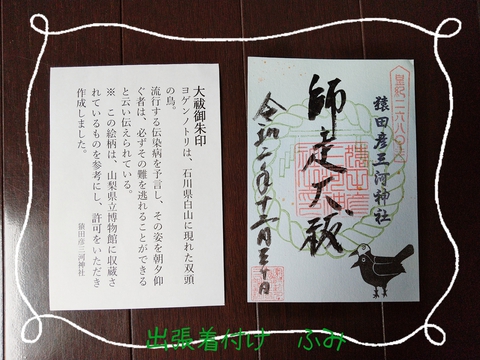 大祓御朱印
ヨゲンノトリは、石川県白山に現れた双頭
の鳥。
流行する伝染病を予言し、その姿を朝夕仰
ぐ者は、必ずその難を逃れることができる
と云い伝えられている。
※ この絵柄は、山梨県立博物館に収蔵さ
れているものを参考にし、許可をいただき
作成しました。
猿田彦三河神社
皇紀二六八〇年
猿田彦三河神社
師走大祓
令和二年十二月三十日
出張着付け ふみ